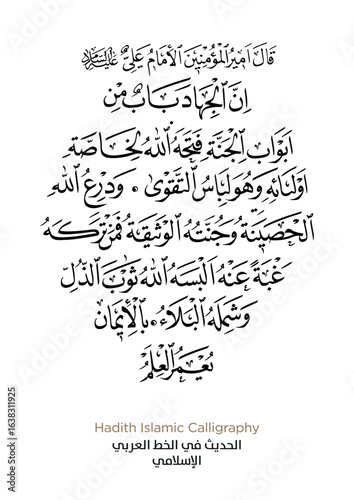 قَالَ اَمِيرُ الْمُؤْمِنِينَ الْأَمَامُ عَلِيٌّ عَلَيْهِ السَّلَام
اِنَّ الْجِهَادَ بَابٌ مِنْ
اَبْوَابِ الْجَنَّةِ فَتَحَهُ اللهُ لِخَاصَةِ
اَوْلِيَائِهِ وَهُوَ لِبَاسُ التَّقْوَى ، وَدِرْعُ اللهِ
الْحَصِينَةُ وَجُنَّتُهُ الْوَثِيقَةُ فَمَنْ تَرَكَهُ
عَنْهُ اَلْبَسَهُ اللهُ ثَوْبَ الذُّلِّ
وَشَمِلَهُ الْبَلَاءُ ، بِالْأِيمَانِ
يُعْمَرُ الْعِلْمُ
Hadith Islamic Calligraphy
الحديث في الخط العربي
الإسلامي
Adobe Stock | #1638311925